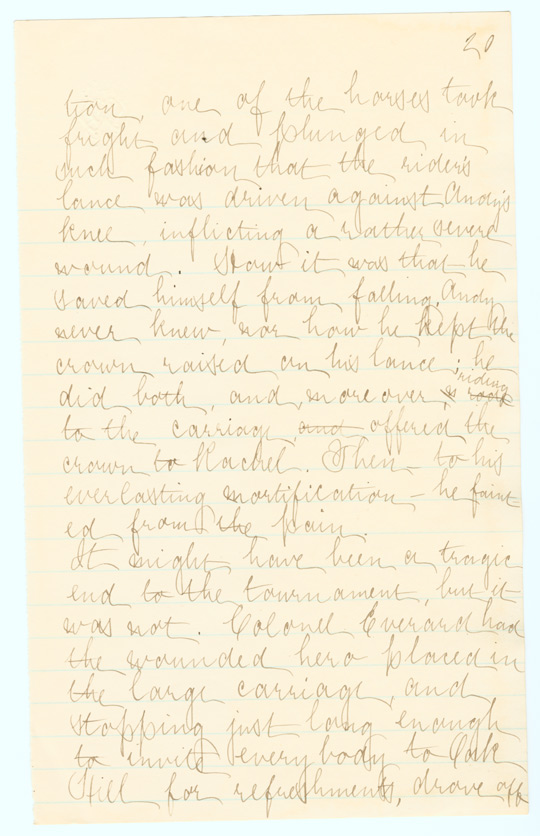 20
tion, one of the horses took
fright and plunged in
such fashion that the rider's
lance was driven against Andy's
knee, inflicting a rather severe
wound. How it was that he
saved himself from falling, Andy
never knew, nor how he kept the
crown raised on his lance; he
did both, and, moreover, riding
to the carriage, and offered the
crown to Rachel. Then – to his
everlasting mortification – he faint
ed from the pain.
It might have been a tragic
end to the tournament, but it
was not. Colonel Everard had
the wounded hero placed in
the large carriage, and
stopping just long enough
to invite everybody to Oak
Hill for refreshments, drove off